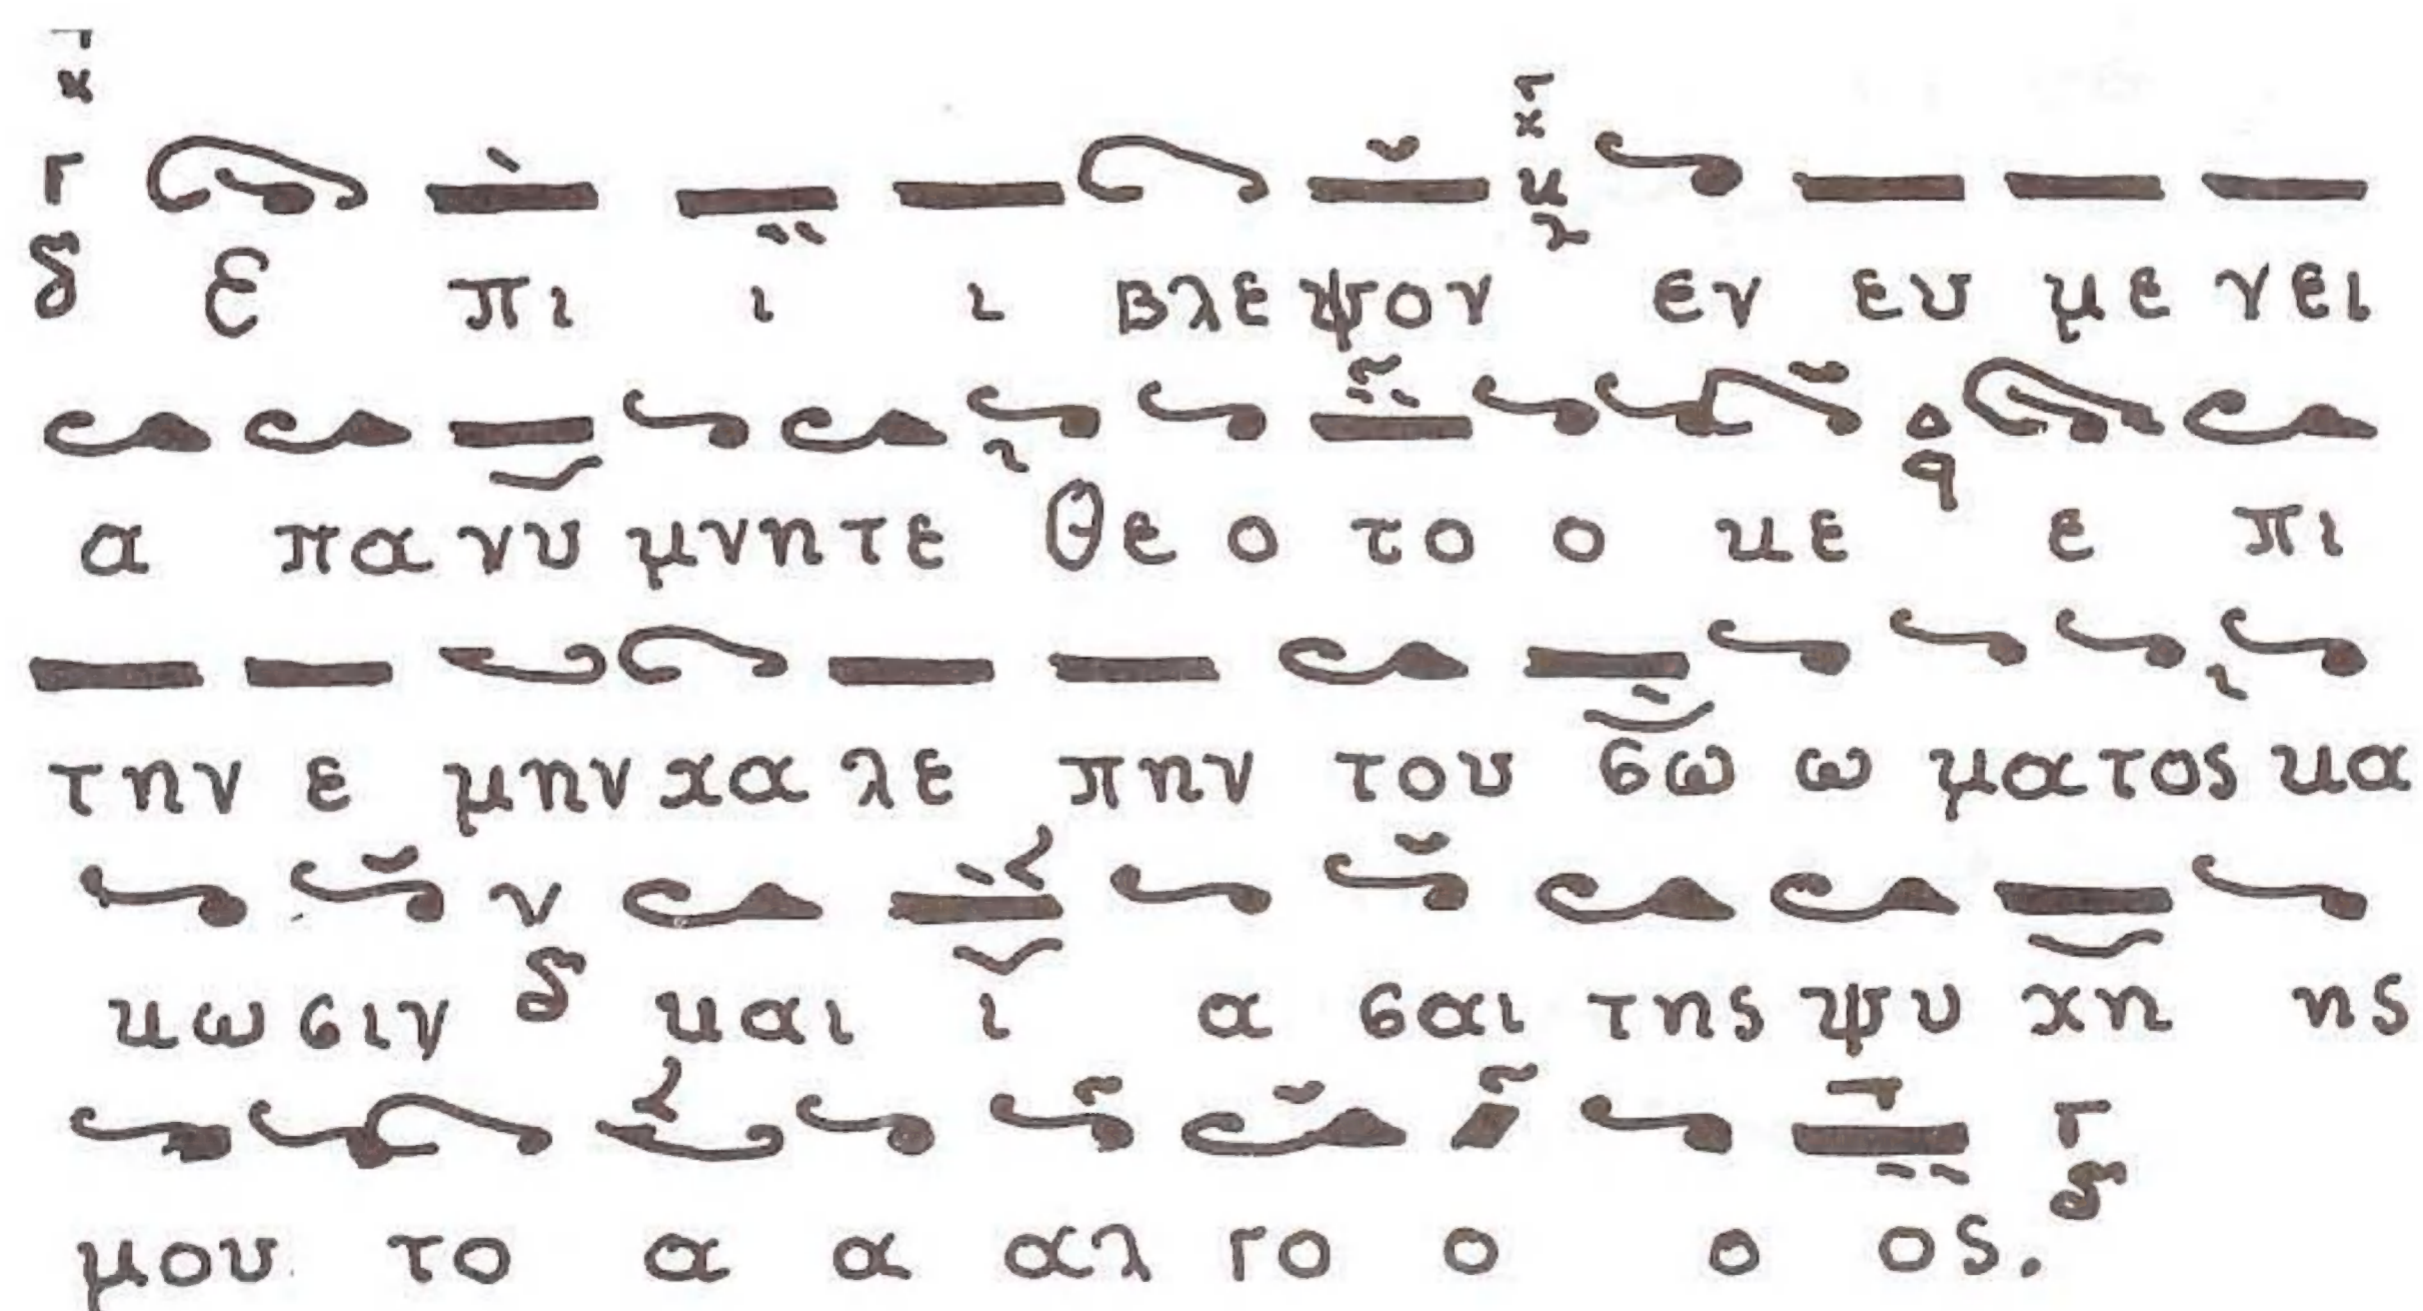 ε πι ι ι βλε ψον εν ευ με νει
α πα νυ μνητε θε ο το ο κε ε πι
την ε μην χα λε πην του σω ω ματος κα
κωσιν και ι α σαι της ψυ χη ης
μου το α α αλ γο ο ο ος.